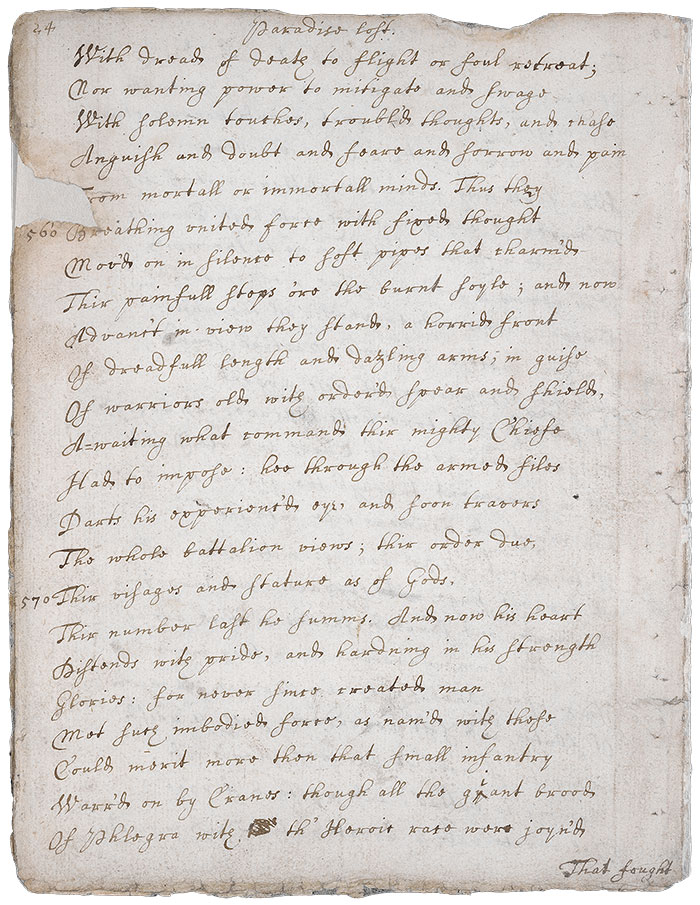 24
Paradise lost.
With dread of death to flight or foul retreat;
Nor wanting power to mitigate and swage
With solemn touches, troubl'd thoughts, and chase
Anguish and doubt and feare and sorrow and pain
From mortall or immortall minds. Thus they
560 Breathing united force with fixed thought
Mov'd on in silence to soft pipes that charm'd
Thir painfull steps o're the burnt soyle; and now
Advanc't in view they stand, a horrid front
Of dreadfull length and dazling arms; in guise
Of warriors old with order'd spear and shield,
A=waiting what command thir mighty Chiefe
Had to impose: hee through the armed files
Darts his experienc'd eye, and soon travers
The whole battalion views; thir order due,
570 Thir visages and stature as of Gods,
Thir number last he summs. And now his heart
Distends with pride, and hardning in his strength
Glories: for never since created man
Met such imbodied force, as nam'd with these
Could merit more then that small infantry
Warr'd on by Cranes: though all the giant brood
Of Phlegra with th' Heroic race were joyn'd
That fought